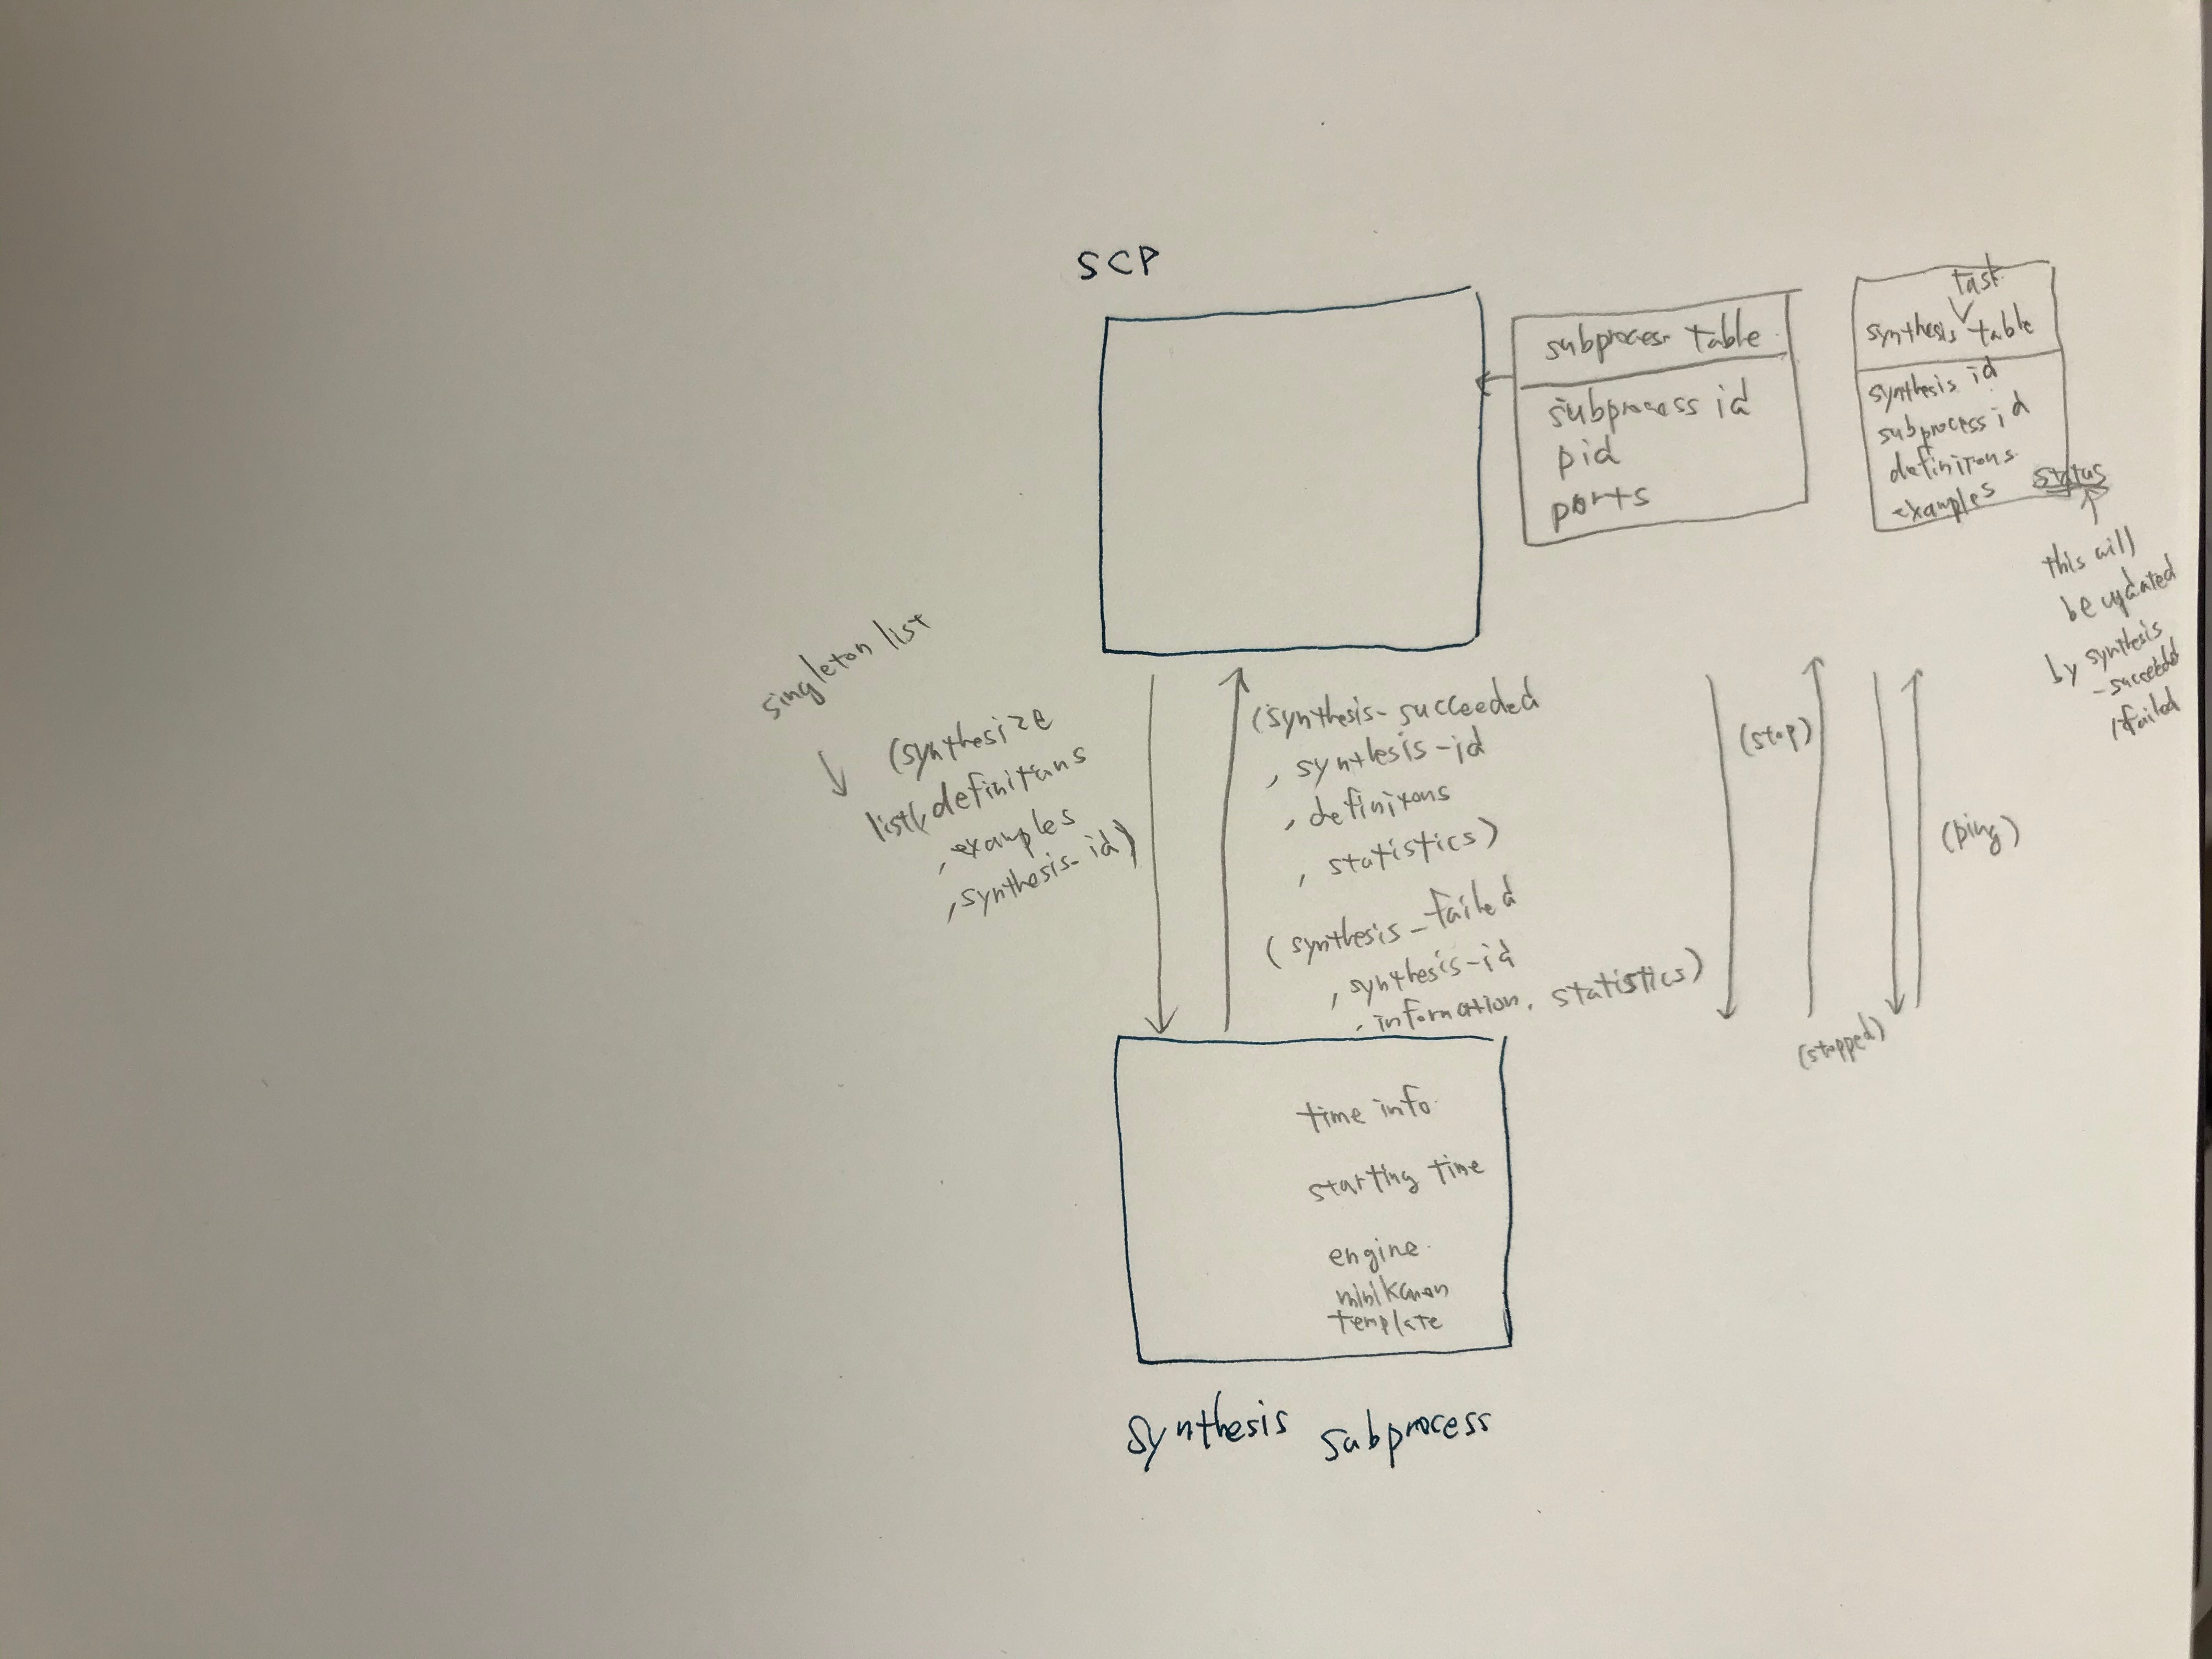 SCP
subprocess table
subprocess id
pid
ports
task
synthesis table
synthesis id
subprocess id
definitions
examples
status
this will
be updated
by synthesis
-succeeded
/failed
singleton list
(synthesize
list(,definitions
,examples
,synthesis-id)
(synthesis-succeeded
, synthesis-id
, definitons
, statistics)
(synthesis-failed
, synthesis-id
, information, statistics)
(stop)
(stopped)
(ping)
time info
starting time
engine
minikanren
template
Synthesis subprocess